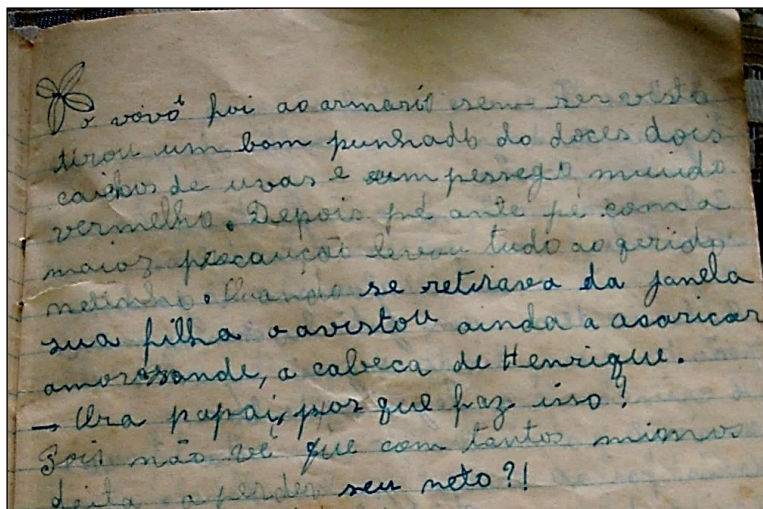 o vovô foi ao armario sem ser visto
tirou um bom punhado do doces dois
caichos de uvas e um pessego muindo
vermelho. Depois pé ante pé com a
maior precaução levou tudo ao qerido
netinho. Quando se retirava da janela
sua filha o avistou ainda a acariçar
a cabeca de Henrique.
— Ora papai, por que faz isso?
Pois não vê que com tantos mimos
deita a perder seu neto?!